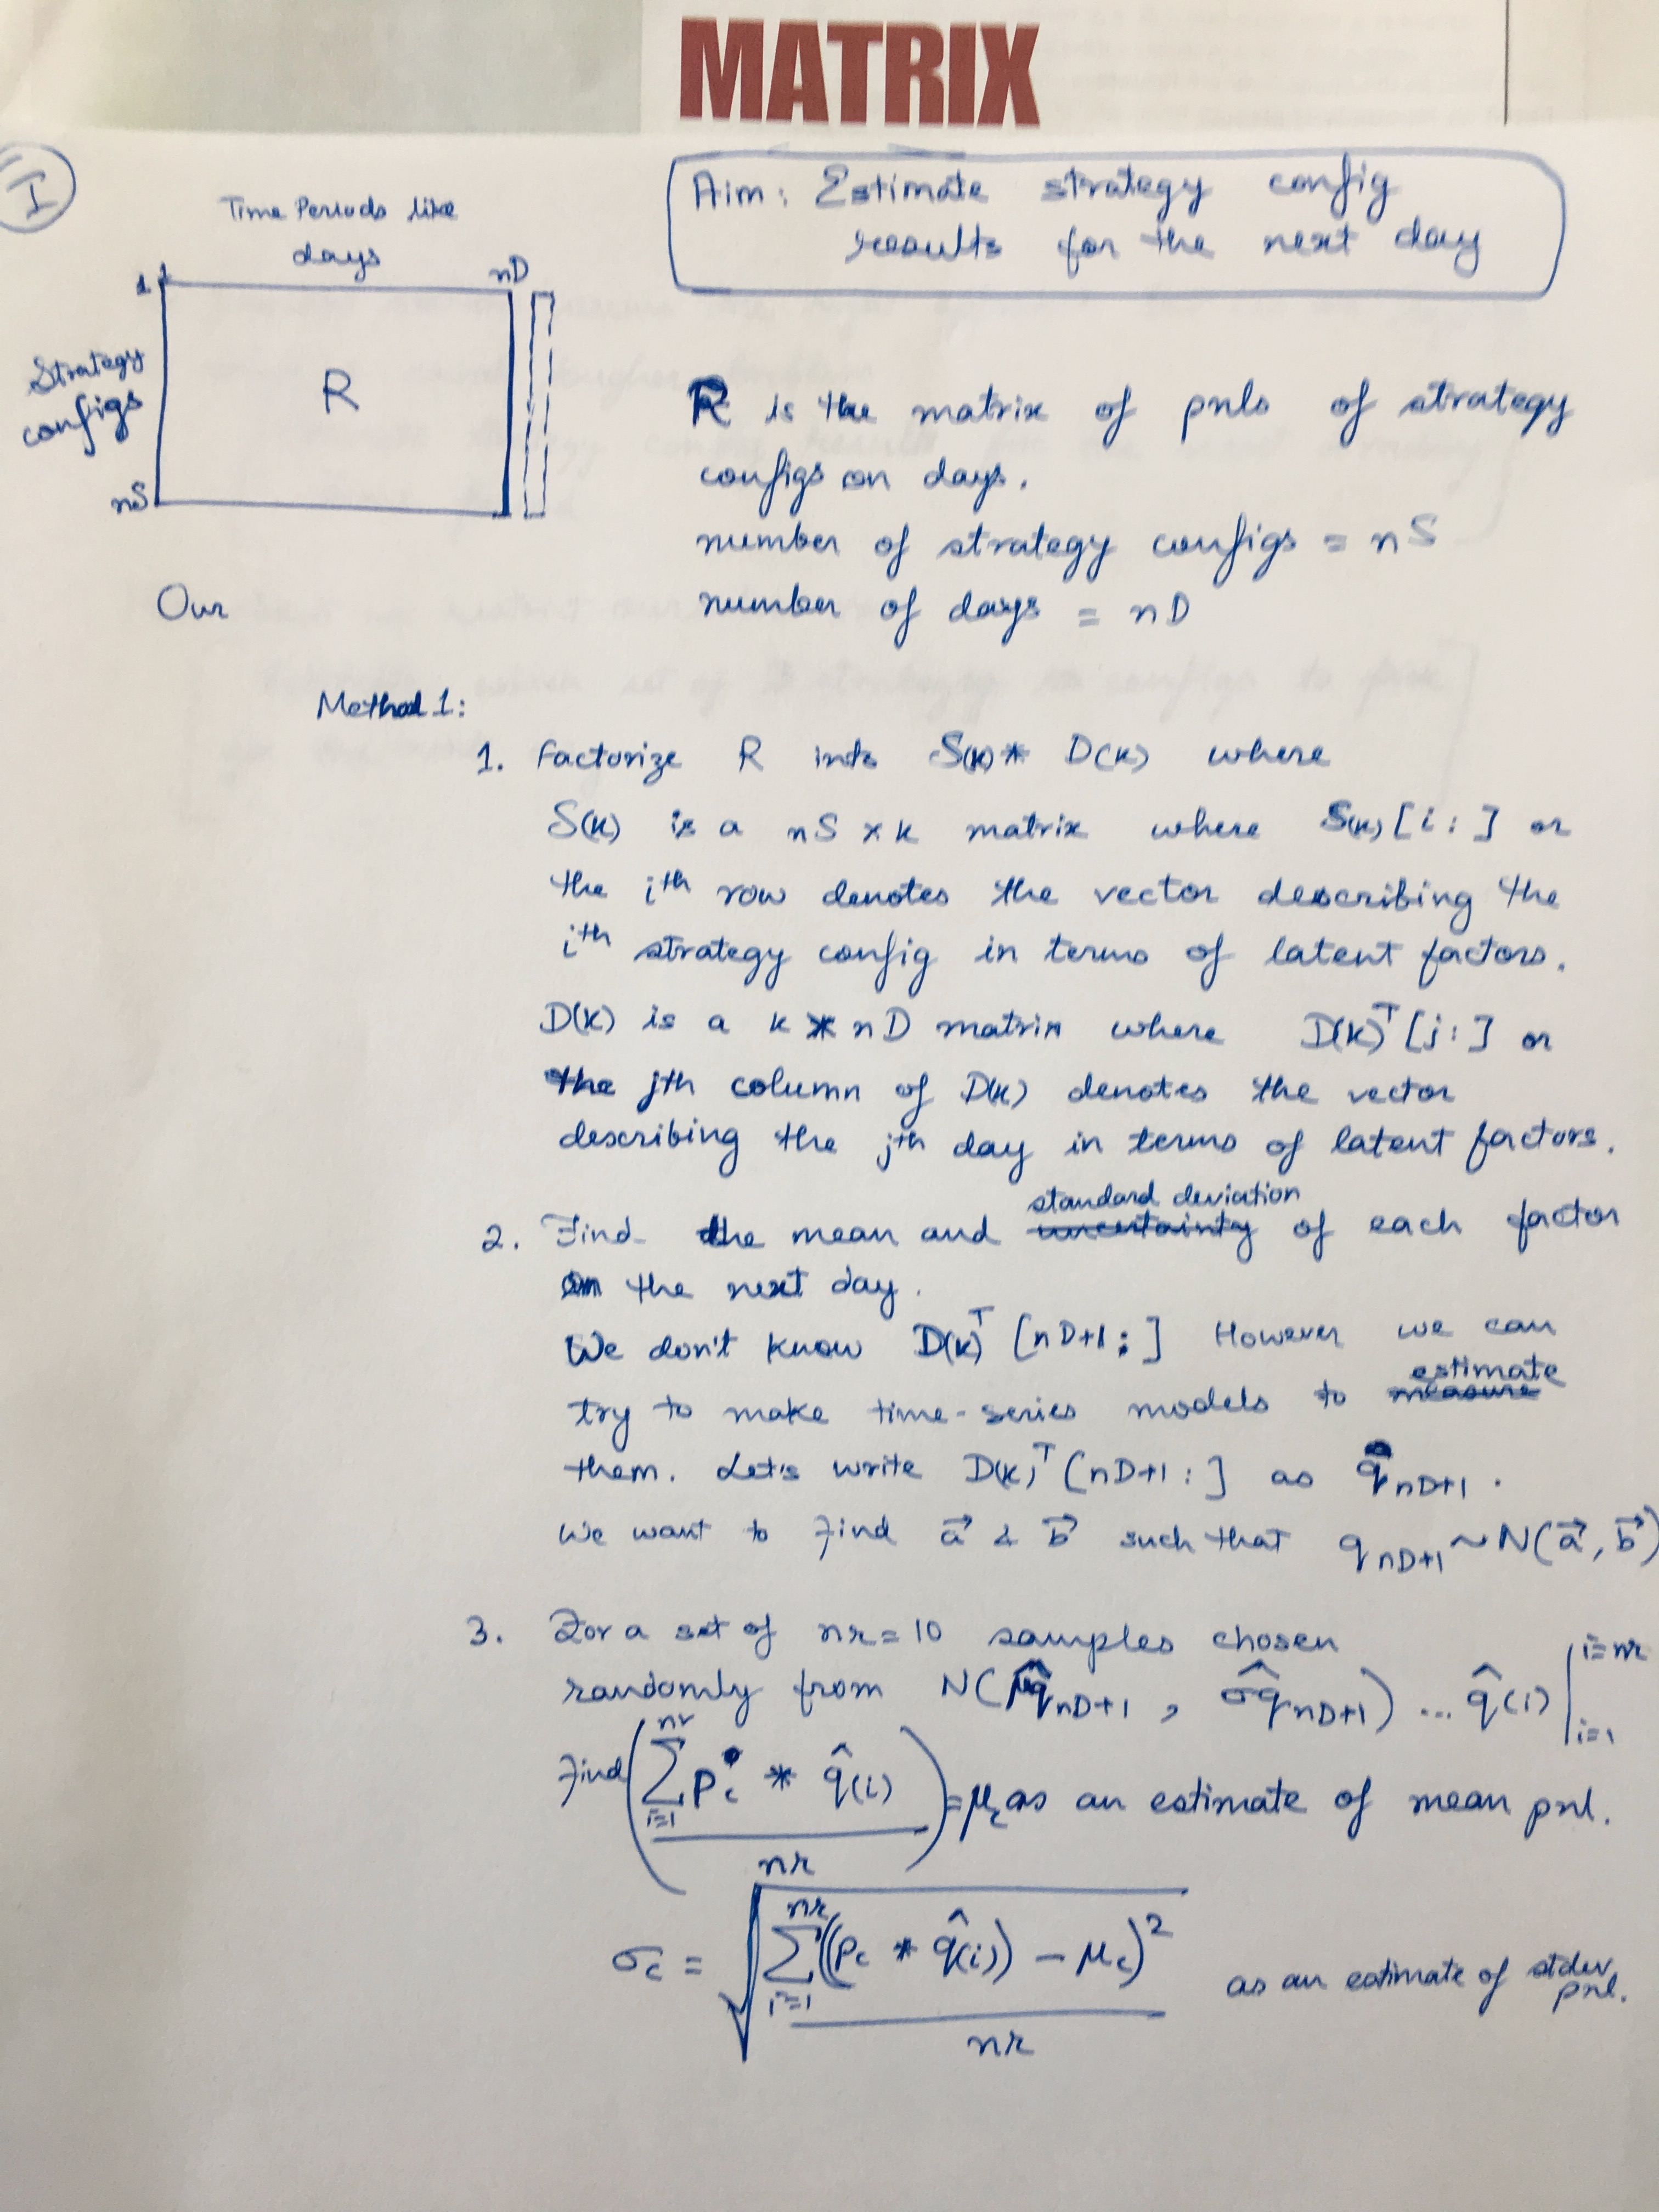 MATRIX
I
Aim: Estimate strategy config
results for the next day
Time Periods like
days
1 1 nD
Strategy
configs
R
nS
R is the matrix of pnls of strategy
configs on days.
number of strategy configs = nS
number of days = nD
Our
Method 1:
1. Factorize R into S(k) * D(k) where
S(k) is a nS x k matrix where S(k) [i:] or
the ith row denotes the vector describing the
ith strategy config in terms of latent factors.
D(k) is a k * nD matrix where D(k)ᵀ [j:] or
the jth column of D(k) denotes the vector
describing the jth day in terms of latent factors.
2. Find the mean and uncertainty standard deviation of each factor
on the next day.
We don't know D(k)ᵀ [nD+1:] However we can
try to make time-series models to measure estimate
them. Let's write D(k)ᵀ [nD+1:] as q̂ nD+1.
We want to find a⃗ & b⃗ such that q nD+1 ~ N(a⃗, b⃗)
3. For a set of nr = 10 samples chosen
randomly from N(μ̂q nD+1, σ̂q nD+1) ... q̂(i) | i=1 i=nr
Find (∑ i=1 nr pc * q̂(i) / nr) = μc as an estimate of mean pnl.
σc = √(∑ i=1 nr ((pc * q̂(i)) - μc)² / nr) as an estimate of stdev pnl.